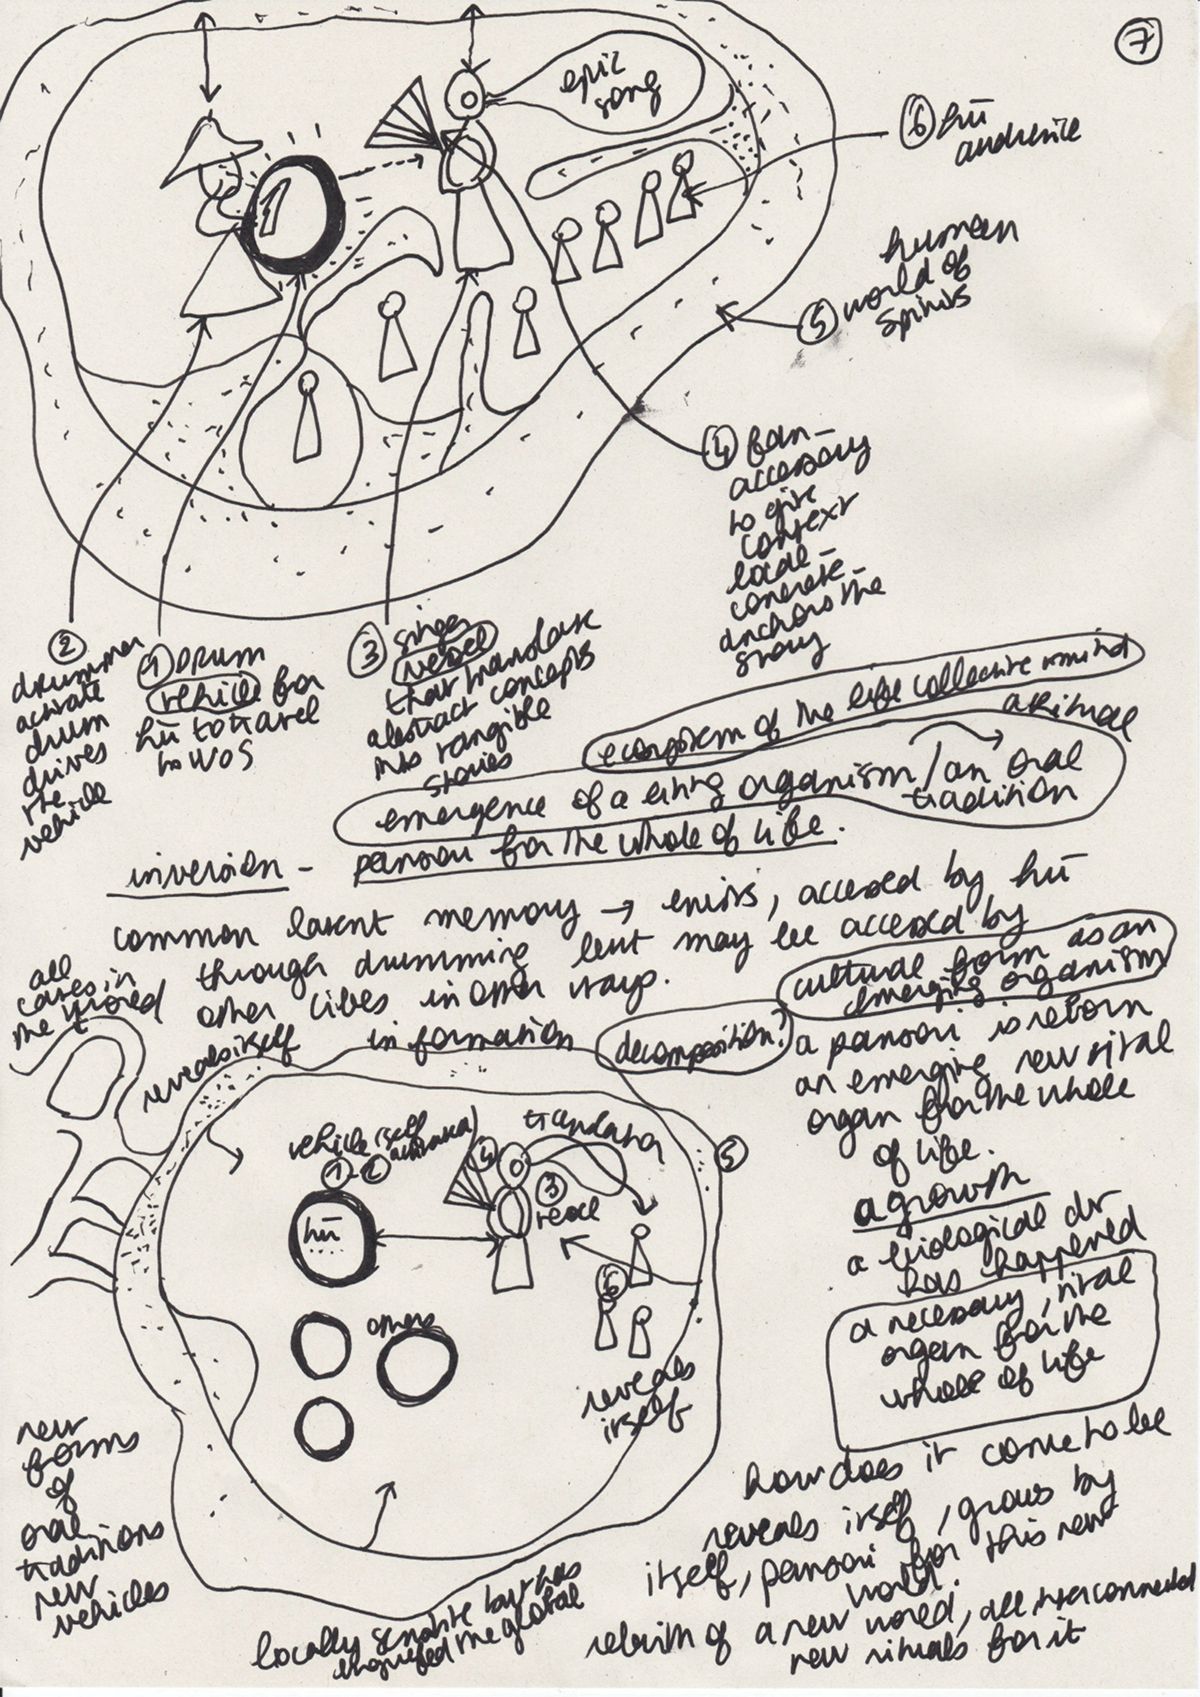 7
epic
song
6 hū
audience
human
5 world of
spirits
4 fan-
accessory
to give
context
local-
concrete-
anchors the
story
2
drummer
activate
drum
drives
the
vehicle
1 drum
vehicle for
hū to travel
to WOS
3 singer
vessel
that translate
abstract concepts
into tangible
stories
ecosystem of the life collective mind
a ritual
emergence of a living organism / an oral
tradition
inversion - pansori for the whole of life.
common latent memory → exists, accessed by hū
through drumming but may be accessed by
other lifes in other ways.
all
caves in
the world
reveals itself
in formation
decomposition?
culture form as an
emerging organism
a pansori is reborn
an emerging new vital
organ for the whole
of life.
a growth
a biological
has happened
a necessary, vital
organ for the
whole of life
vehicle itself
1-2
hū
4
translating
3
vessel
5
6
others
reveals
itself
new
forms
of
oral
traditions
new
vehicles
locally sensitive but has
engulfed the global
how does it come to be
reveals itself, grows by
itself, pansori for this new
world.
rebirth of a new world, all interconnected
new rituals for it